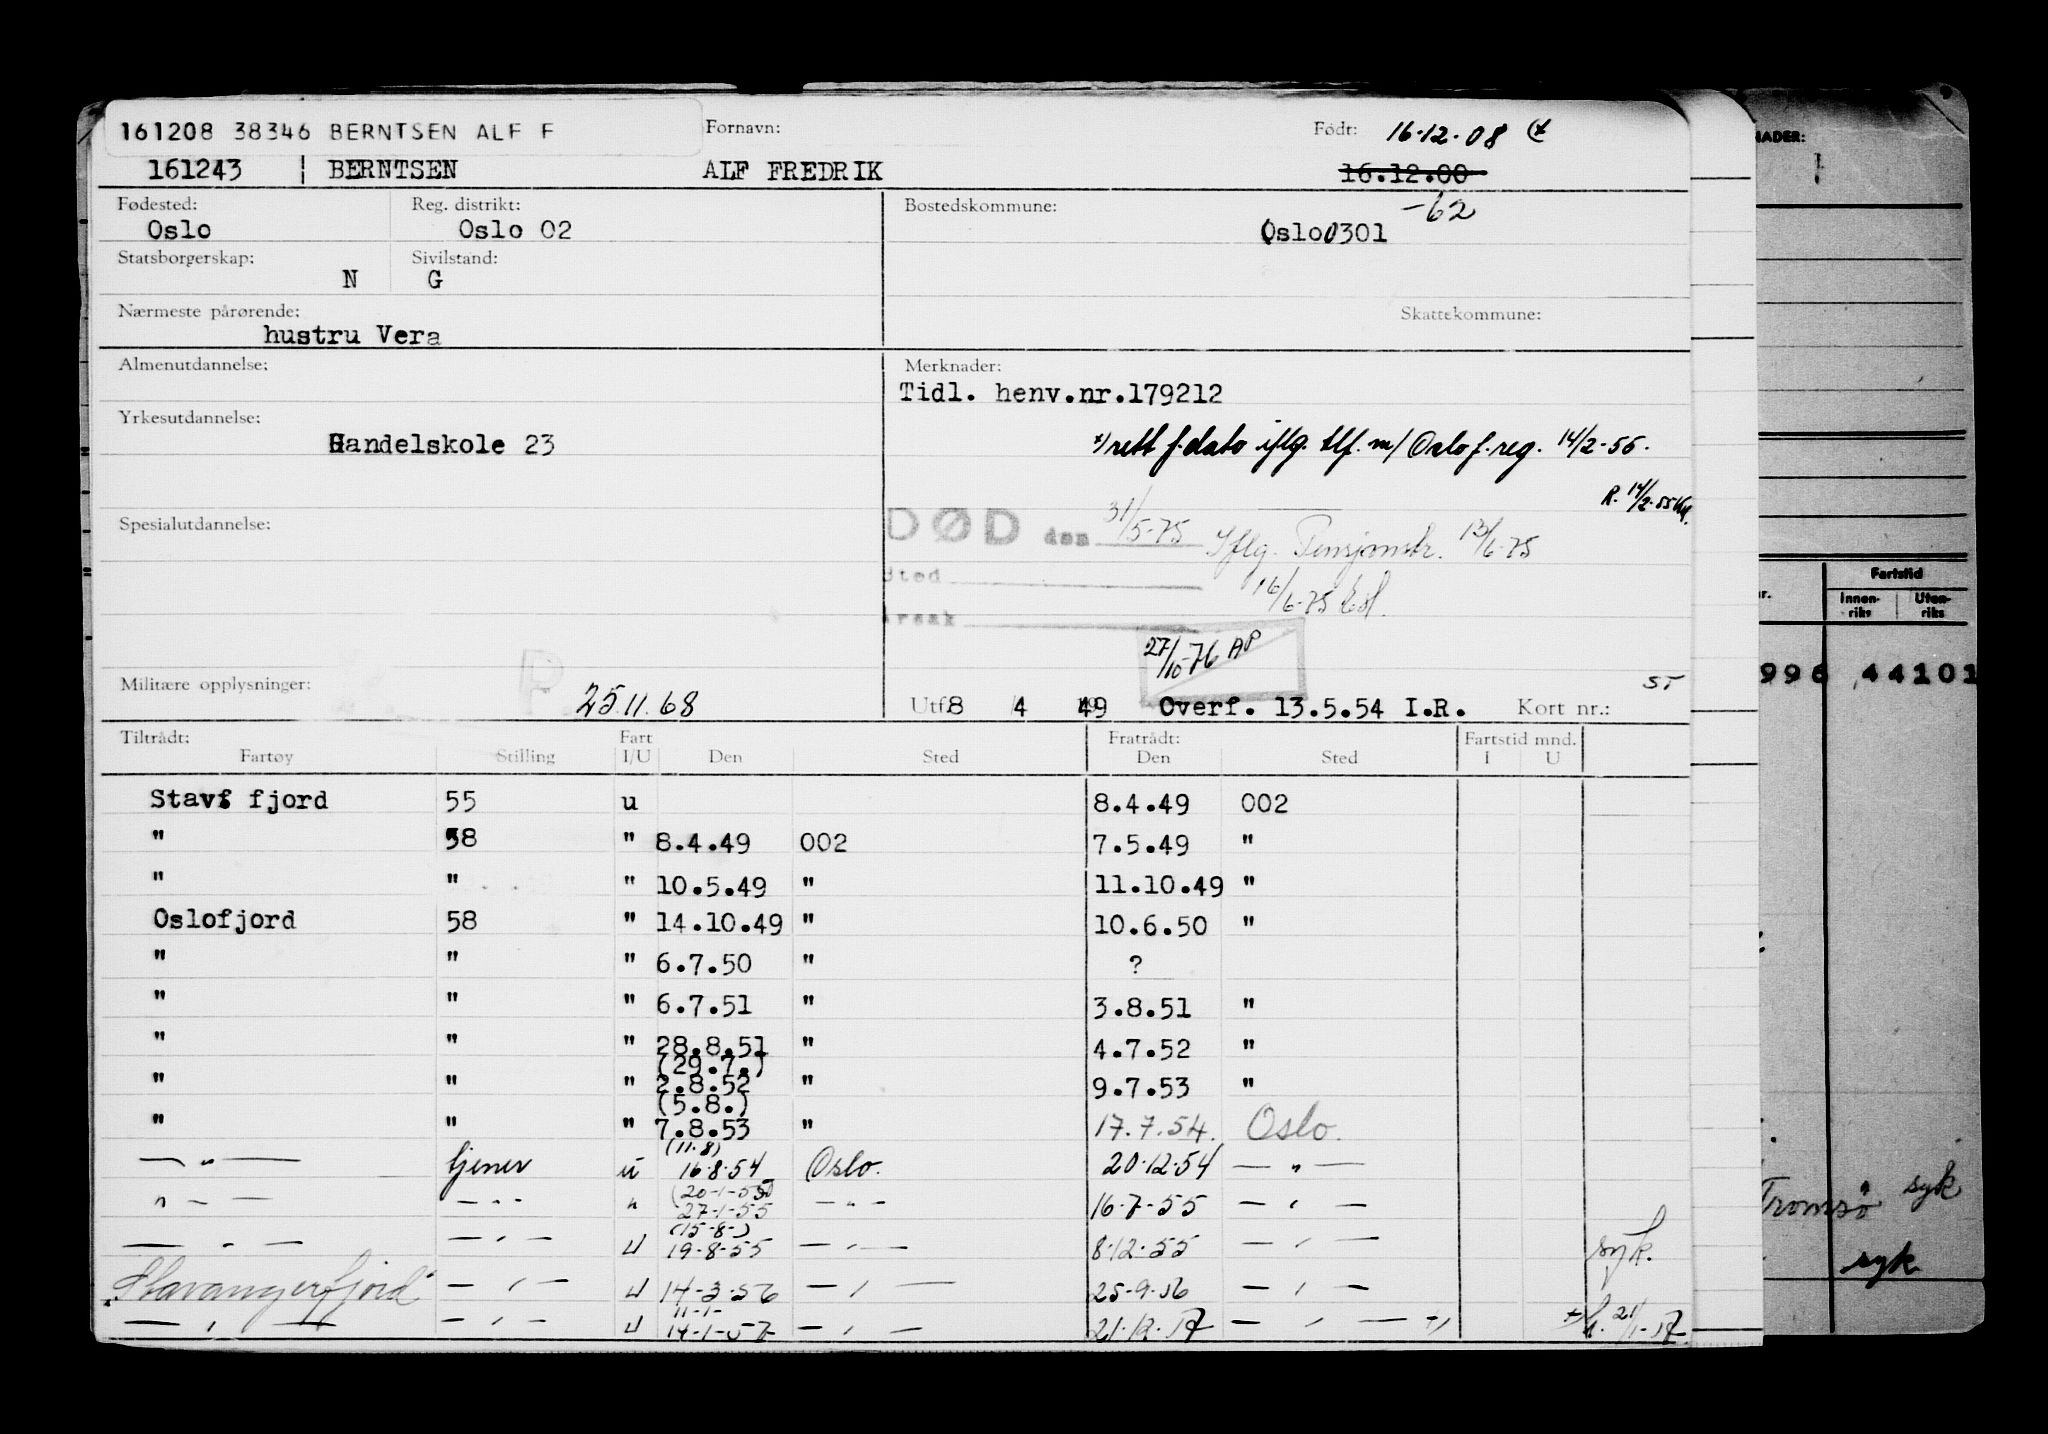 161208 38346 BERNTSEN ALF F
Fornavn: Født: 16.12.08 (x
161243 | BERNTSEN ALF FREDRIK 16.12.00
Fødested: Reg. distrikt: Bostedskommune: -62
Oslo Oslo 02 Oslo 0301
Statsborgerskap: Sivilstand:
N G
Nærmeste pårørende: Skattekommune:
hustru Vera
Almenutdannelse: Merknader:
Tidl. henv.nr.179212
Yrkesutdannelse:
Handelskole 23 x) rett f.dato iflg. tlf. m/ Oslo f.reg. 14/2-55.
R. 14/2-55
Spesialutdannelse: DØD den 31/5-75 Iflg. Pensjonstr. 13/6-75
Sted 16/6-75
Årsak
27/10-76 AP
Militære opplysninger: P 25.11.68 ST
Utf. 8 4 49 Overf. 13.5.54 I.R. Kort nr.:
Tiltrådt: Fart Fratrådt: Fartstid mnd.
Fartøy Stilling I/U Den Sted Den Sted I U
Stavf fjord 55 u 8.4.49 002
" 58 " 8.4.49 002 7.5.49 "
" " " 10.5.49 " 11.10.49 "
Oslofjord 58 " 14.10.49 " 10.6.50 "
" " " 6.7.50 " ?
" " " 6.7.51 " 3.8.51 "
" " " 28.8.51 " 4.7.52 "
(29.7.)
" " " 2.8.52 " 9.7.53 "
(5.8.)
" " " 7.8.53 " 17.7.54. Oslo.
(11.8)
— " — tjener u 16.8.54 Oslo. 20.12.54 — " —
(20-1-55)
" — — — " — " 27-1-55 — " — 16.7-55 — " —
(15-8-)
— " — — " — U 19-8-55 — " — 8.12-55 — " — syk.
"Stavangerfjord" — " — U 14-3-56 — " — 25-9-56 — " —
11-1-
— " — — " — U 14-1-57 — " — 21.12.57 — " — x) x) 21/1-57
NADER:
Fartstid
Innen-
riks
Uten-
riks
996 44101
Tromsø syk
syk